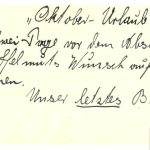 „Oktober-Urlaube
zwei Tage vor dem Abs
Helmuts Wunsch auf
en.
Unser letztes B